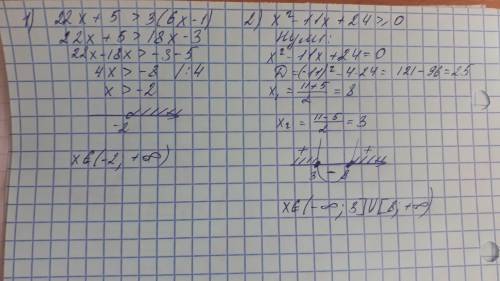 1) 22x + 5 > 3(6x-1)
22x + 5 > 18x - 3
22x - 18x > -3 - 5
4x > -8 |:4
x > -2
-2
x∈(-2, +∞)
2) x² - 11x + 24 ≥ 0
Нули:
x² - 11x + 24 = 0
D = (-11)² - 4·24 = 121 - 96 = 25
x₁ = (11+5)/2 = 8
x₂ = (11-5)/2 = 3
+ - +
3 8
x∈(-∞; 3]∪[8, +∞)